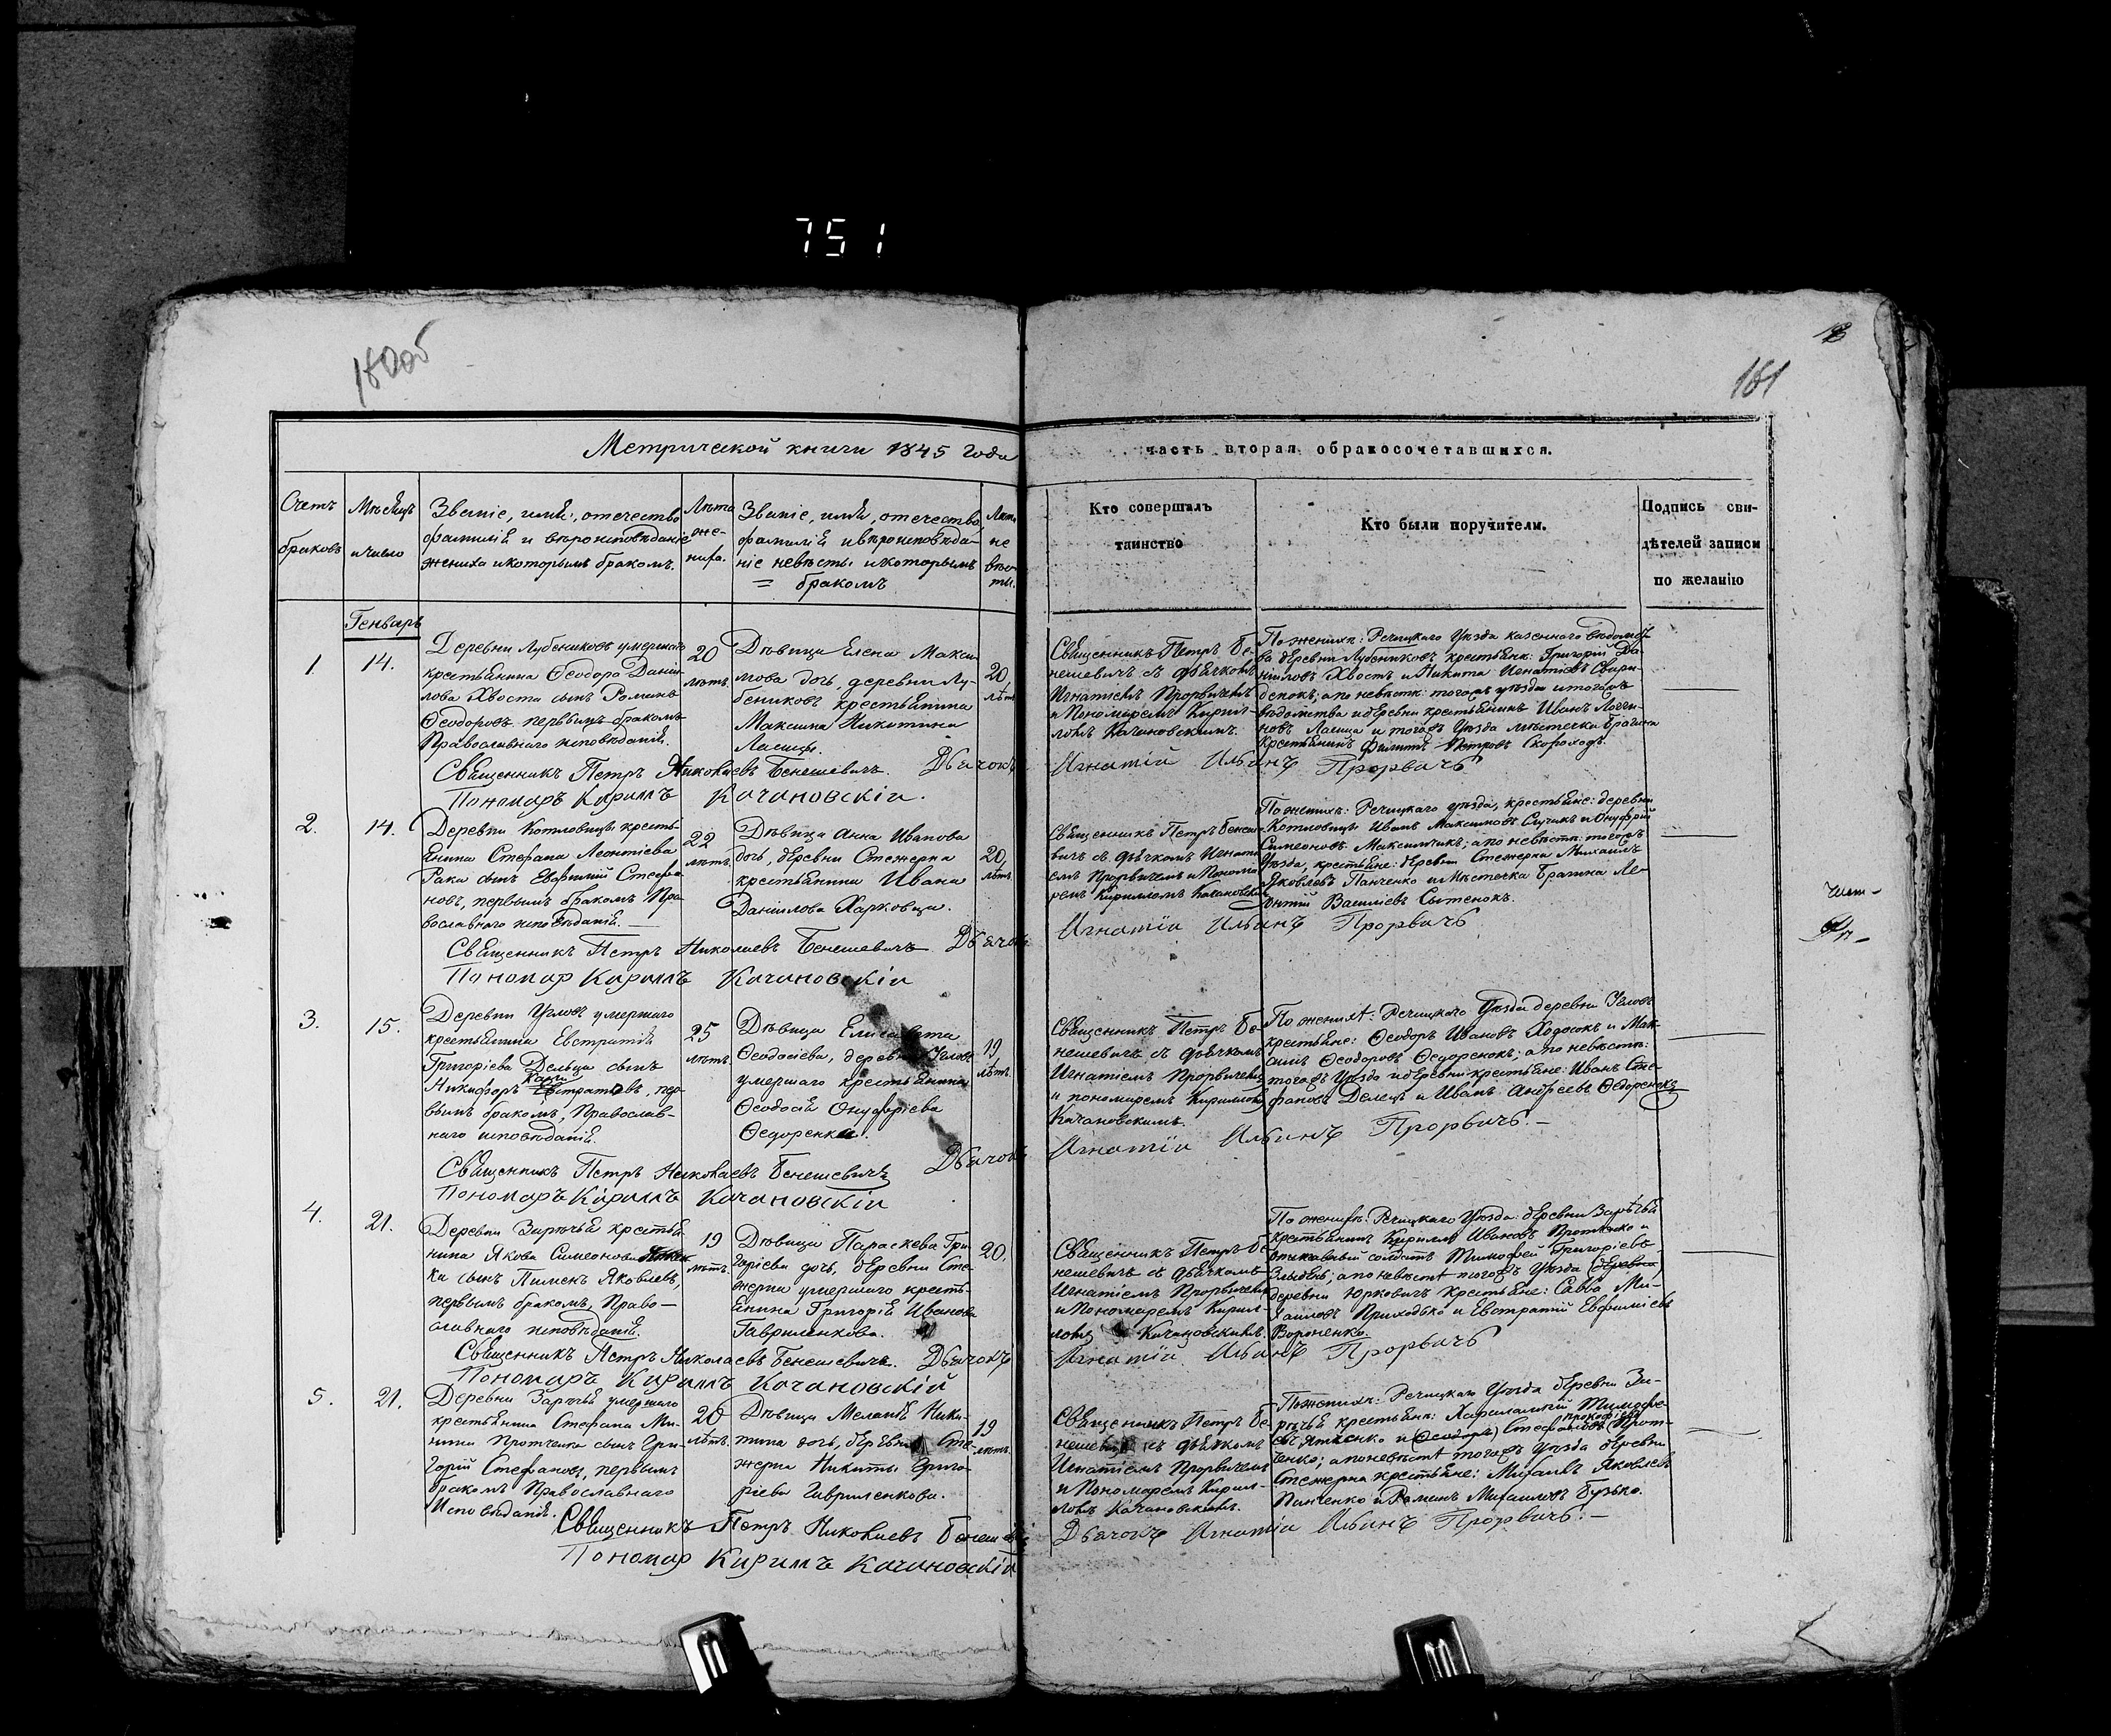 751
180об
181
Метрической книги 1845 года
часть вторая о бракосочетавшихся.
Счетъ
браковъ
Мѣсяцъ
и число
Званіе, имя, отечество
фамилія и вѣроисповѣданіе
жениха и которымъ бракомъ.
Лѣта
же-
ниха.
Званіе, имя, отечество,
фамилія и вѣроисповѣда-
ніе невѣсты и которымъ
= бракомъ
Лѣта
не
вѣс-
ты.
Кто совершалъ
таинство
Кто были поручители.
Подпись сви-
дѣтелей записи
по желанію
Генварь
1.
14.
Деревни Лубениковъ умершаго
крестьянина Ѳеодора Дани-
лова Хвоста сынъ Романъ
Ѳеодоровъ первымъ бракомъ
Православнаго исповѣданія.
20
лѣтъ.
Дѣвица Елена Макси-
мова дочь, деревни Лу-
бениковъ крестьянина
Максима Никитина
Лисицы.
20,
лѣтъ
Священникъ Петръ Бе-
нешевичъ съ дьячкомъ
Игнатіемъ Прорвичемъ
и Пономаремъ Кирил-
ломъ Качановскимъ.
По женихѣ: Речицкаго Уѣзда казеннаго вѣдомст-
ва деревни Лубениковъ крестьяне: Григорій Да-
ніиловъ Хвостъ и Никита Игнатіевъ Свири-
денокъ; а по невѣстѣ: тогожъ уѣзда и тогожъ
вѣдомства и деревни крестьянинъ Иванъ Логги-
новъ Лисица и тогожъ Уѣзда мѣстечка Брагина
крестьянинъ Филипъ Петровъ Скороходъ.
Священникъ Петръ Николаевъ Бенешевичъ. Дьячокъ Игнатій Ильинъ Прорвичъ
Пономаръ Кирилъ Качановскіи.
2.
14.
Деревни Котловицы кресть-
янина Стефана Леонтіева
Рака сынъ Евфимій Стефа-
новъ, первымъ бракомъ Пра-
вославнаго исповѣданія.
22
лѣтъ.
Дѣвица Анна Иванова
дочь, деревни Стежерна
крестьянина Ивана
Даніилова Харковца.
20,
лѣтъ.
Священникъ Петръ Бенеше-
вичъ съ дьячкомъ Игнаті-
емъ Прорвичемъ и Понома-
ремъ Кирилломъ Качановским
По женихѣ: Речицкаго уѣзда, крестьяне: деревни
Котловицы Иванъ Максимовъ Случикъ и Онуфрій
Симеоновъ Максимчикъ; а по невѣстѣ: тогожъ
Уѣзда, крестьяне: деревни Стежерна Михаилъ
Яковлевъ Панченко и Мѣстечка Брагина Ле-
онтій Василіевъ Сытенокъ.
Священникъ Петръ Николаевъ Бенешевичъ Дьячокъ Игнатіи Ильинъ Прорвичъ
Пономар Кирилъ Качановскіи
3.
15.
Деревни Угловъ умершаго
крестьянина Евстратія
Григоріева Дельца сынъ
Никифоръ Евстратовъ, пер-
вымъ бракомъ, Православ-
наго исповѣданія.
25
лѣтъ.
Дѣвица Елисавета
Ѳеодосіева, деревни Угловъ
умершаго крестьянина
Ѳеодосія Онуфріева
Ѳедоренка.
19,
лѣтъ.
Священникъ Петръ Бе-
нешевичъ съ дьячкомъ
Игнатіемъ Прорвичемъ
и пономаремъ Кирилломъ
Качановскимъ.
По женихѣ: Речицкаго Уѣзда деревни Угловъ
крестьяне: Ѳеодоръ Ивановъ Ходосокъ и Мак-
симъ Ѳеодоровъ Ѳедоренокъ; а по невѣстѣ:
тогожъ Уѣзда и деревни крестьяне: Иванъ Сте-
фановъ Делецъ и Иванъ Андреевъ Ѳедоренокъ
Священникъ Петръ Николаевъ Бенешевичъ Дьячокъ Игнатіи Ильинъ Прорвичъ.
Пономаръ Кирилъ Качановскіи
4.
21.
Деревни Зарѣчья крестья-
нина Якова Симеонова
ка сынъ Пименъ Яковлевъ,
первымъ бракомъ, Право-
славнаго исповѣданія.
19
лѣтъ.
Дѣвица Параскева Гри-
горіева дочь, деревни Сте-
жерна умершаго кресть-
янина Григорія Иванова
Гавриленкова.
20.
Священникъ Петръ Бе-
нешевичъ съ дьячкомъ
Игнатіемъ Прорвичемъ
и Пономаремъ Кирил-
ломъ Качановскимъ.
По женихѣ: Речицкаго Уѣзда деревни Зарѣчья
крестьянинъ Кирилло Ивановъ Протченко и
отставный солдатъ Тимофей Григоріевъ
Злыдень; а по невѣстѣ тогожъ Уѣзда (деревни)
деревни Юрковичъ крестьяне: Савва Ми-
хаиловъ Приходько и Евстратій Евфиміевъ
Вороненко.
Священникъ Петръ Николаевъ Бенешевичъ. Дьячокъ Игнатіи Ильинъ Прорвичъ
Пономаръ Кирилъ Качановскій
5.
21.
Деревни Зарѣчья умершаго
крестьянина Стефана Ми-
нина Протченка сынъ Гри-
горій Стефановъ, первымъ
бракомъ Православнаго
Исповѣданія.
20
лѣтъ.
Дѣвица Меланія Ники-
тина дочь, деревни Сте-
жерна Никиты Григо-
ріева Гавриленкова.
19
лѣтъ.
Священникъ Петръ Бе-
нешевичъ съ дьячкомъ
Игнатіемъ Прорвичемъ
и Пономаремъ Кирил-
ломъ Качановскимъ.
По женихѣ: Речицкаго Уѣзда деревни За-
рѣчья крестьяне: Харалампій Тимофе-
евъ Ятченко и (Ѳеодоръ) Стефановъ Прот-
ченко; а по невѣстѣ тогожъ Уѣзда деревни
Стежерна крестьяне: Михаилъ Яковлевъ
Панченко и Романъ Михаиловъ Бузько.
Священникъ Петръ Николаевъ Бенешевичъ Дьячокъ Игнатіи Ильинъ Прорвичъ.
Пономар Кирилъ Качановскіи